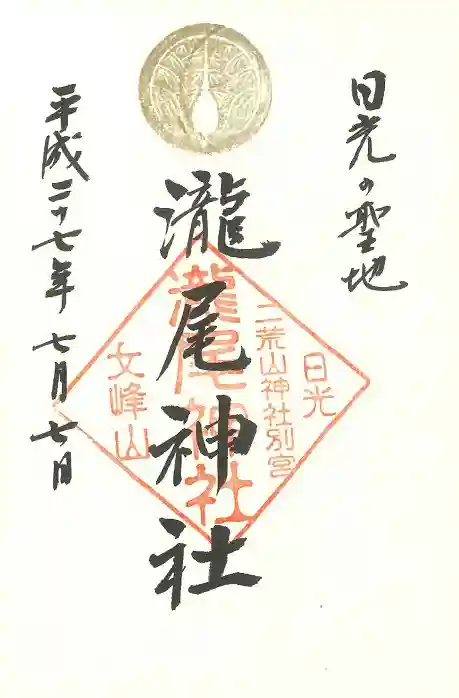 日光の聖地
瀧尾神社
平成二十七年七月七日
日光
二荒山神社別宮
瀧尾神社
女峰山